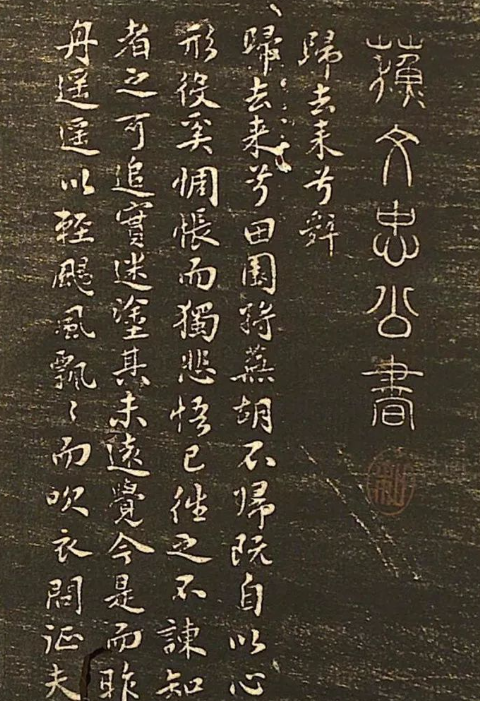 蘇文忠公書
歸去来兮辭
歸去来兮田園將蕪胡不歸既自以心
形役奚惆悵而獨悲悟已往之不諫知
者之可追實迷塗其未遠覺今是而昨
舟遥遥以輕颺風飄〻而吹衣問征夫